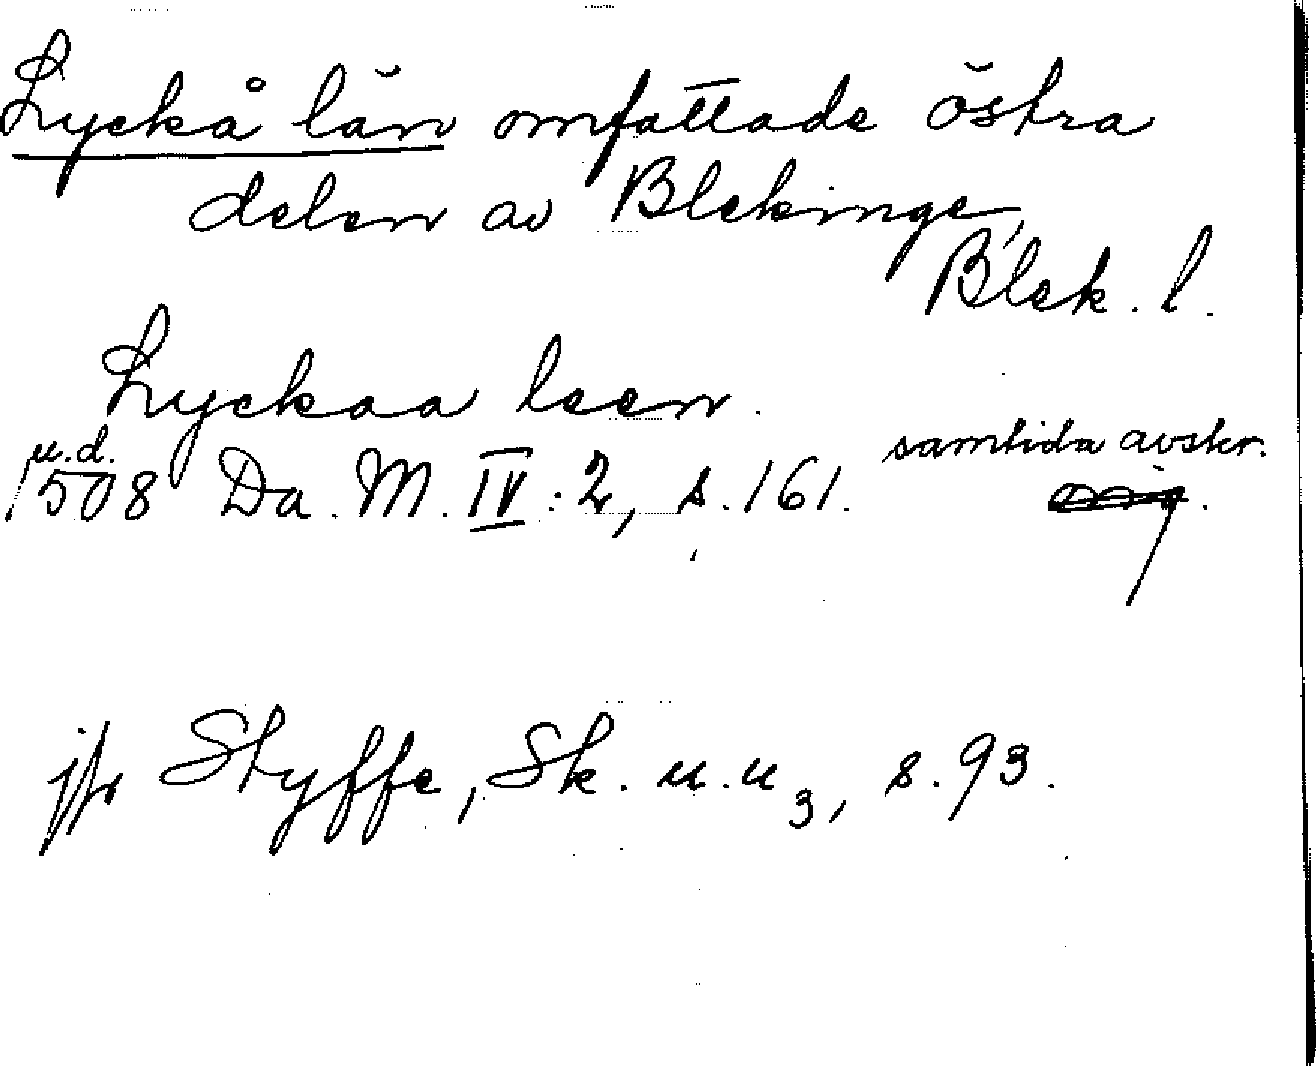 Lyckå län omfattade östra
delen av Blekinge,
Blek. l.
Lyckaa leen.
u.d. samtida avskr.
1508 Da. M. IV:2, s. 161.
jfr Styffe, Sk. u. u 3, s. 93.